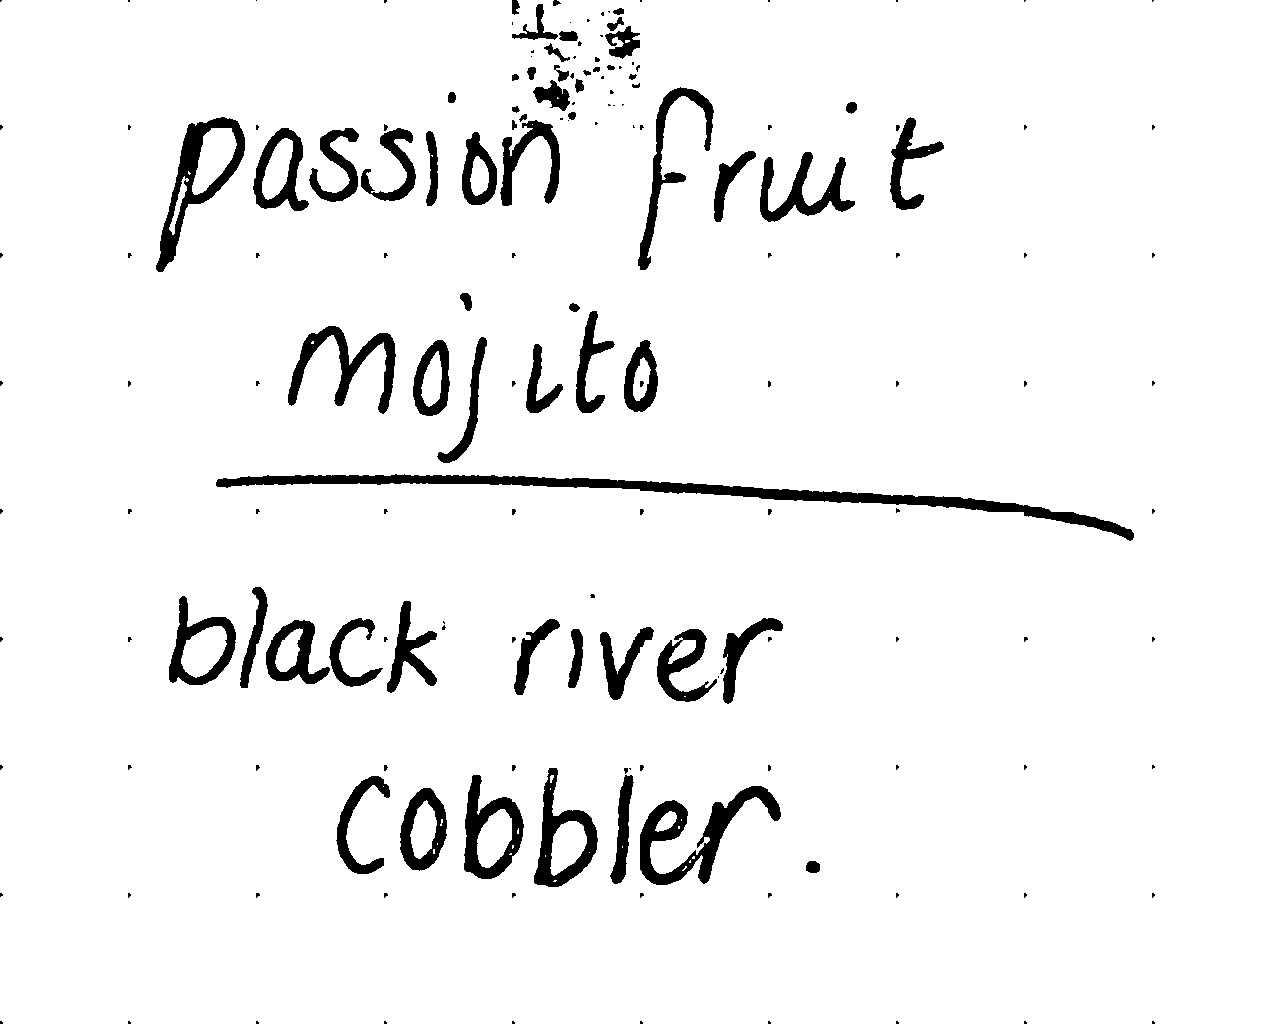 passion fruit
mojito
black river
cobbler.